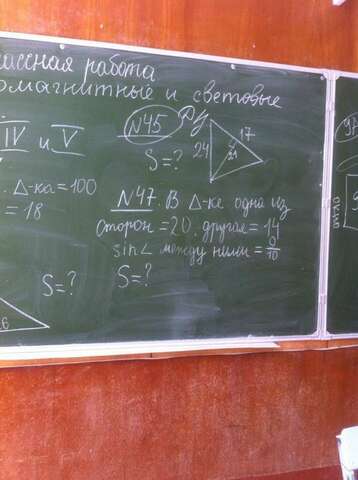 лассная работа
омагнитные и световые
IV и V
. Δ-ка = 100
= 18
S = ?
6
N45
S = ?
24
17
21
N47. В Δ-ке одна из
сторон = 20, другая = 14
sin∠ между ними = 9/10
S = ?